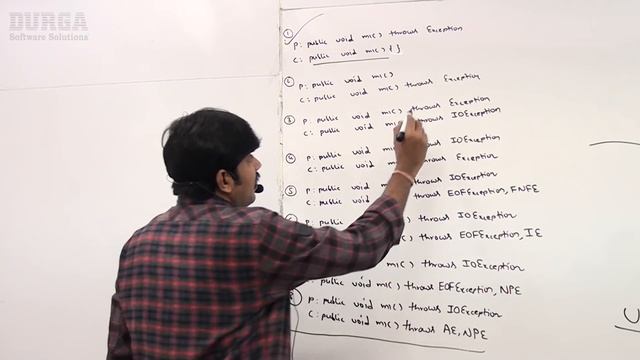 DURGA
Software Solutions
① P: public void m1() throws Exception
C: public void m1() { }
② P: public void m1()
C: public void m1() throws Exception
③ P: public void m1() throws Exception
C: public void m1() throws IOException
④ P: public void m1() throws IOException
C: public void m1() throws Exception
⑤ P: public void m1() throws IOException
C: public void m1() throws EOFException, FNFE
m1() throws IOException
throws EOFException, IE
m1() throws IOException
public void m1() throws EOFException, NPE
⑧ P: public void m1() throws IOException
C: public void m1() throws AE, NPE